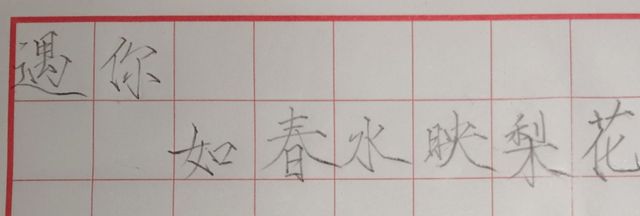 遇你
如春水映梨花